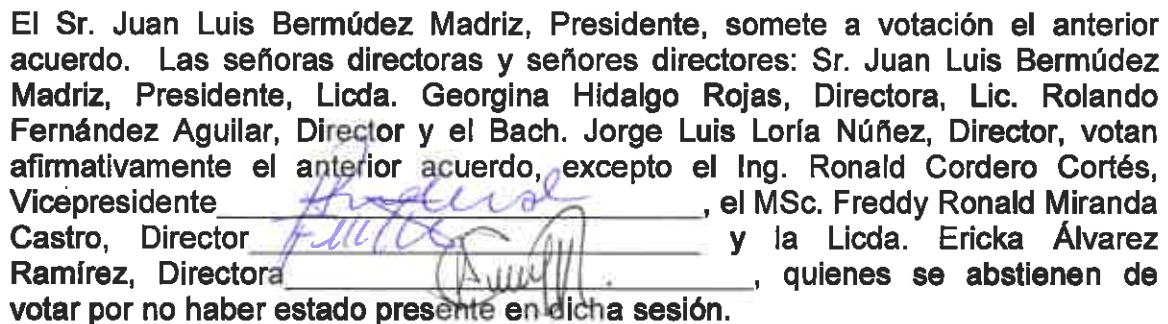 El Sr. Juan Luis Bermúdez Madriz, Presidente, somete a votación el anterior
acuerdo. Las señoras directoras y señores directores: Sr. Juan Luis Bermúdez
Madriz, Presidente, Licda. Georgina Hidalgo Rojas, Directora, Lic. Rolando
Fernández Aguilar, Director y el Bach. Jorge Luis Loría Núñez, Director, votan
afirmativamente el anterior acuerdo, excepto el Ing. Ronald Cordero Cortés,
Vicepresidente , el MSc. Freddy Ronald Miranda
Castro, Director y la Licda. Ericka Álvarez
Ramírez, Directora , quienes se abstienen de
votar por no haber estado presente en dicha sesión.